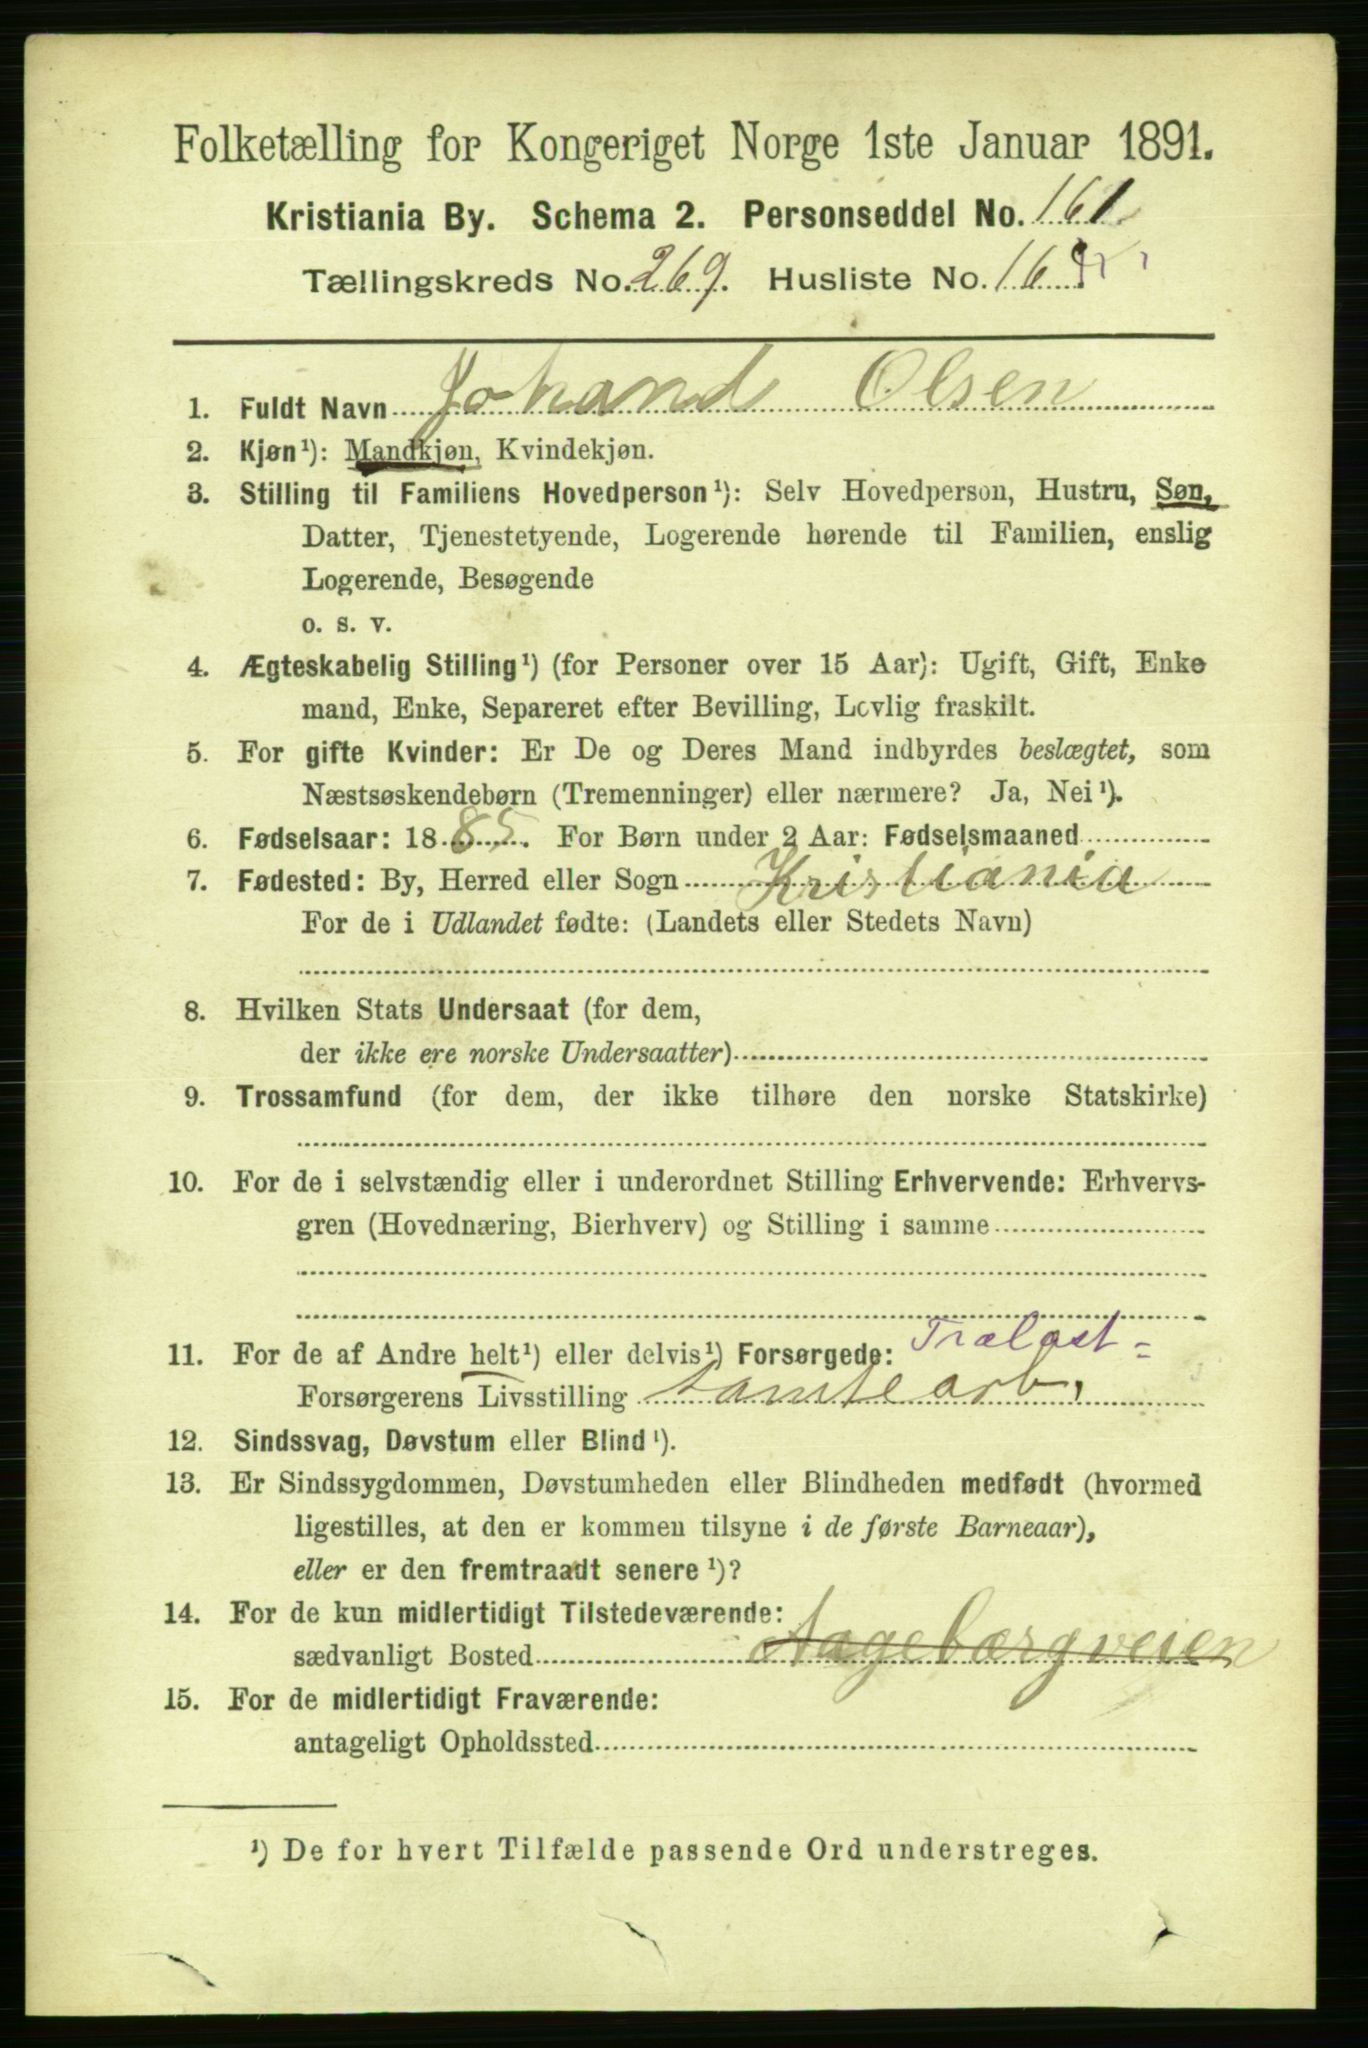 Folketælling for Kongeriget Norge 1ste Januar 1891.
Kristiania By. Schema 2. Personseddel No. 161
Tællingskreds No. 269. Husliste No. 16
1. Fuldt Navn Johand Olsen
2. Kjøn¹): Mandkjøn, Kvindekjøn.
3. Stilling til Familiens Hovedperson¹): Selv Hovedperson, Hustru, Søn,
Datter, Tjenestetyende, Logerende hørende til Familien, enslig
Logerende, Besøgende
o. s. v.
4. Ægteskabelig Stilling¹) (for Personer over 15 Aar): Ugift, Gift, Enke
mand, Enke, Separeret efter Bevilling, Lovlig fraskilt.
5. For gifte Kvinder: Er De og Deres Mand indbyrdes beslægtet, som
Næstsøskendebørn (Tremenninger) eller nærmere? Ja, Nei¹).
6. Fødselsaar: 1885. For Børn under 2 Aar: Fødselsmaaned
7. Fødested: By, Herred eller Sogn Kristiania
For de i Udlandet fødte: (Landets eller Stedets Navn)
8. Hvilken Stats Undersaat (for dem,
der ikke ere norske Undersaatter)
9. Trossamfund (for dem, der ikke tilhøre den norske Statskirke)
10. For de i selvstændig eller i underordnet Stilling Erhvervende: Erhvervs-
gren (Hovednæring, Bierhverv) og Stilling i samme
11. For de af Andre helt¹) eller delvis¹) Forsørgede: Trælast=
Forsørgerens Livsstilling tomtearb.
12. Sindssvag, Døvstum eller Blind¹).
13. Er Sindssygdommen, Døvstumheden eller Blindheden medfødt (hvormed
ligestilles, at den er kommen tilsyne i de første Barneaar),
eller er den fremtraadt senere¹)?
14. For de kun midlertidigt Tilstedeværende:
sædvanligt Bosted Aagebærgveien
15. For de midlertidigt Fraværende:
antageligt Opholdssted
¹) De for hvert Tilfælde passende Ord understreges.